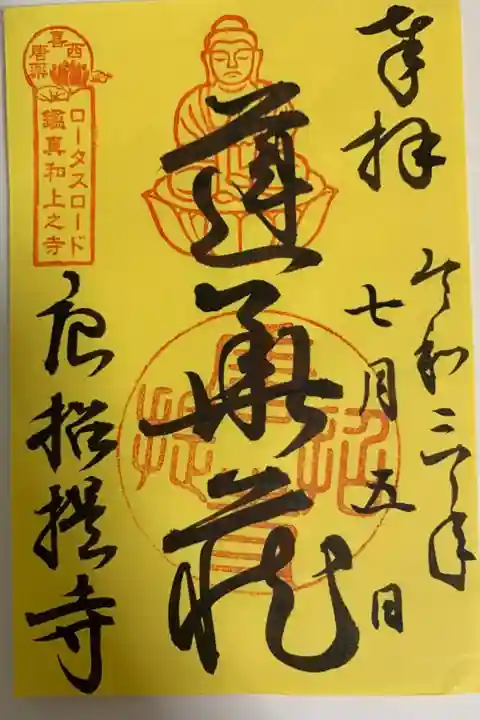 奉拝
令和三年
七月五日
蓮華蔵
唐招提寺
西喜唐薬
ロータスロード
鑑真和上之寺